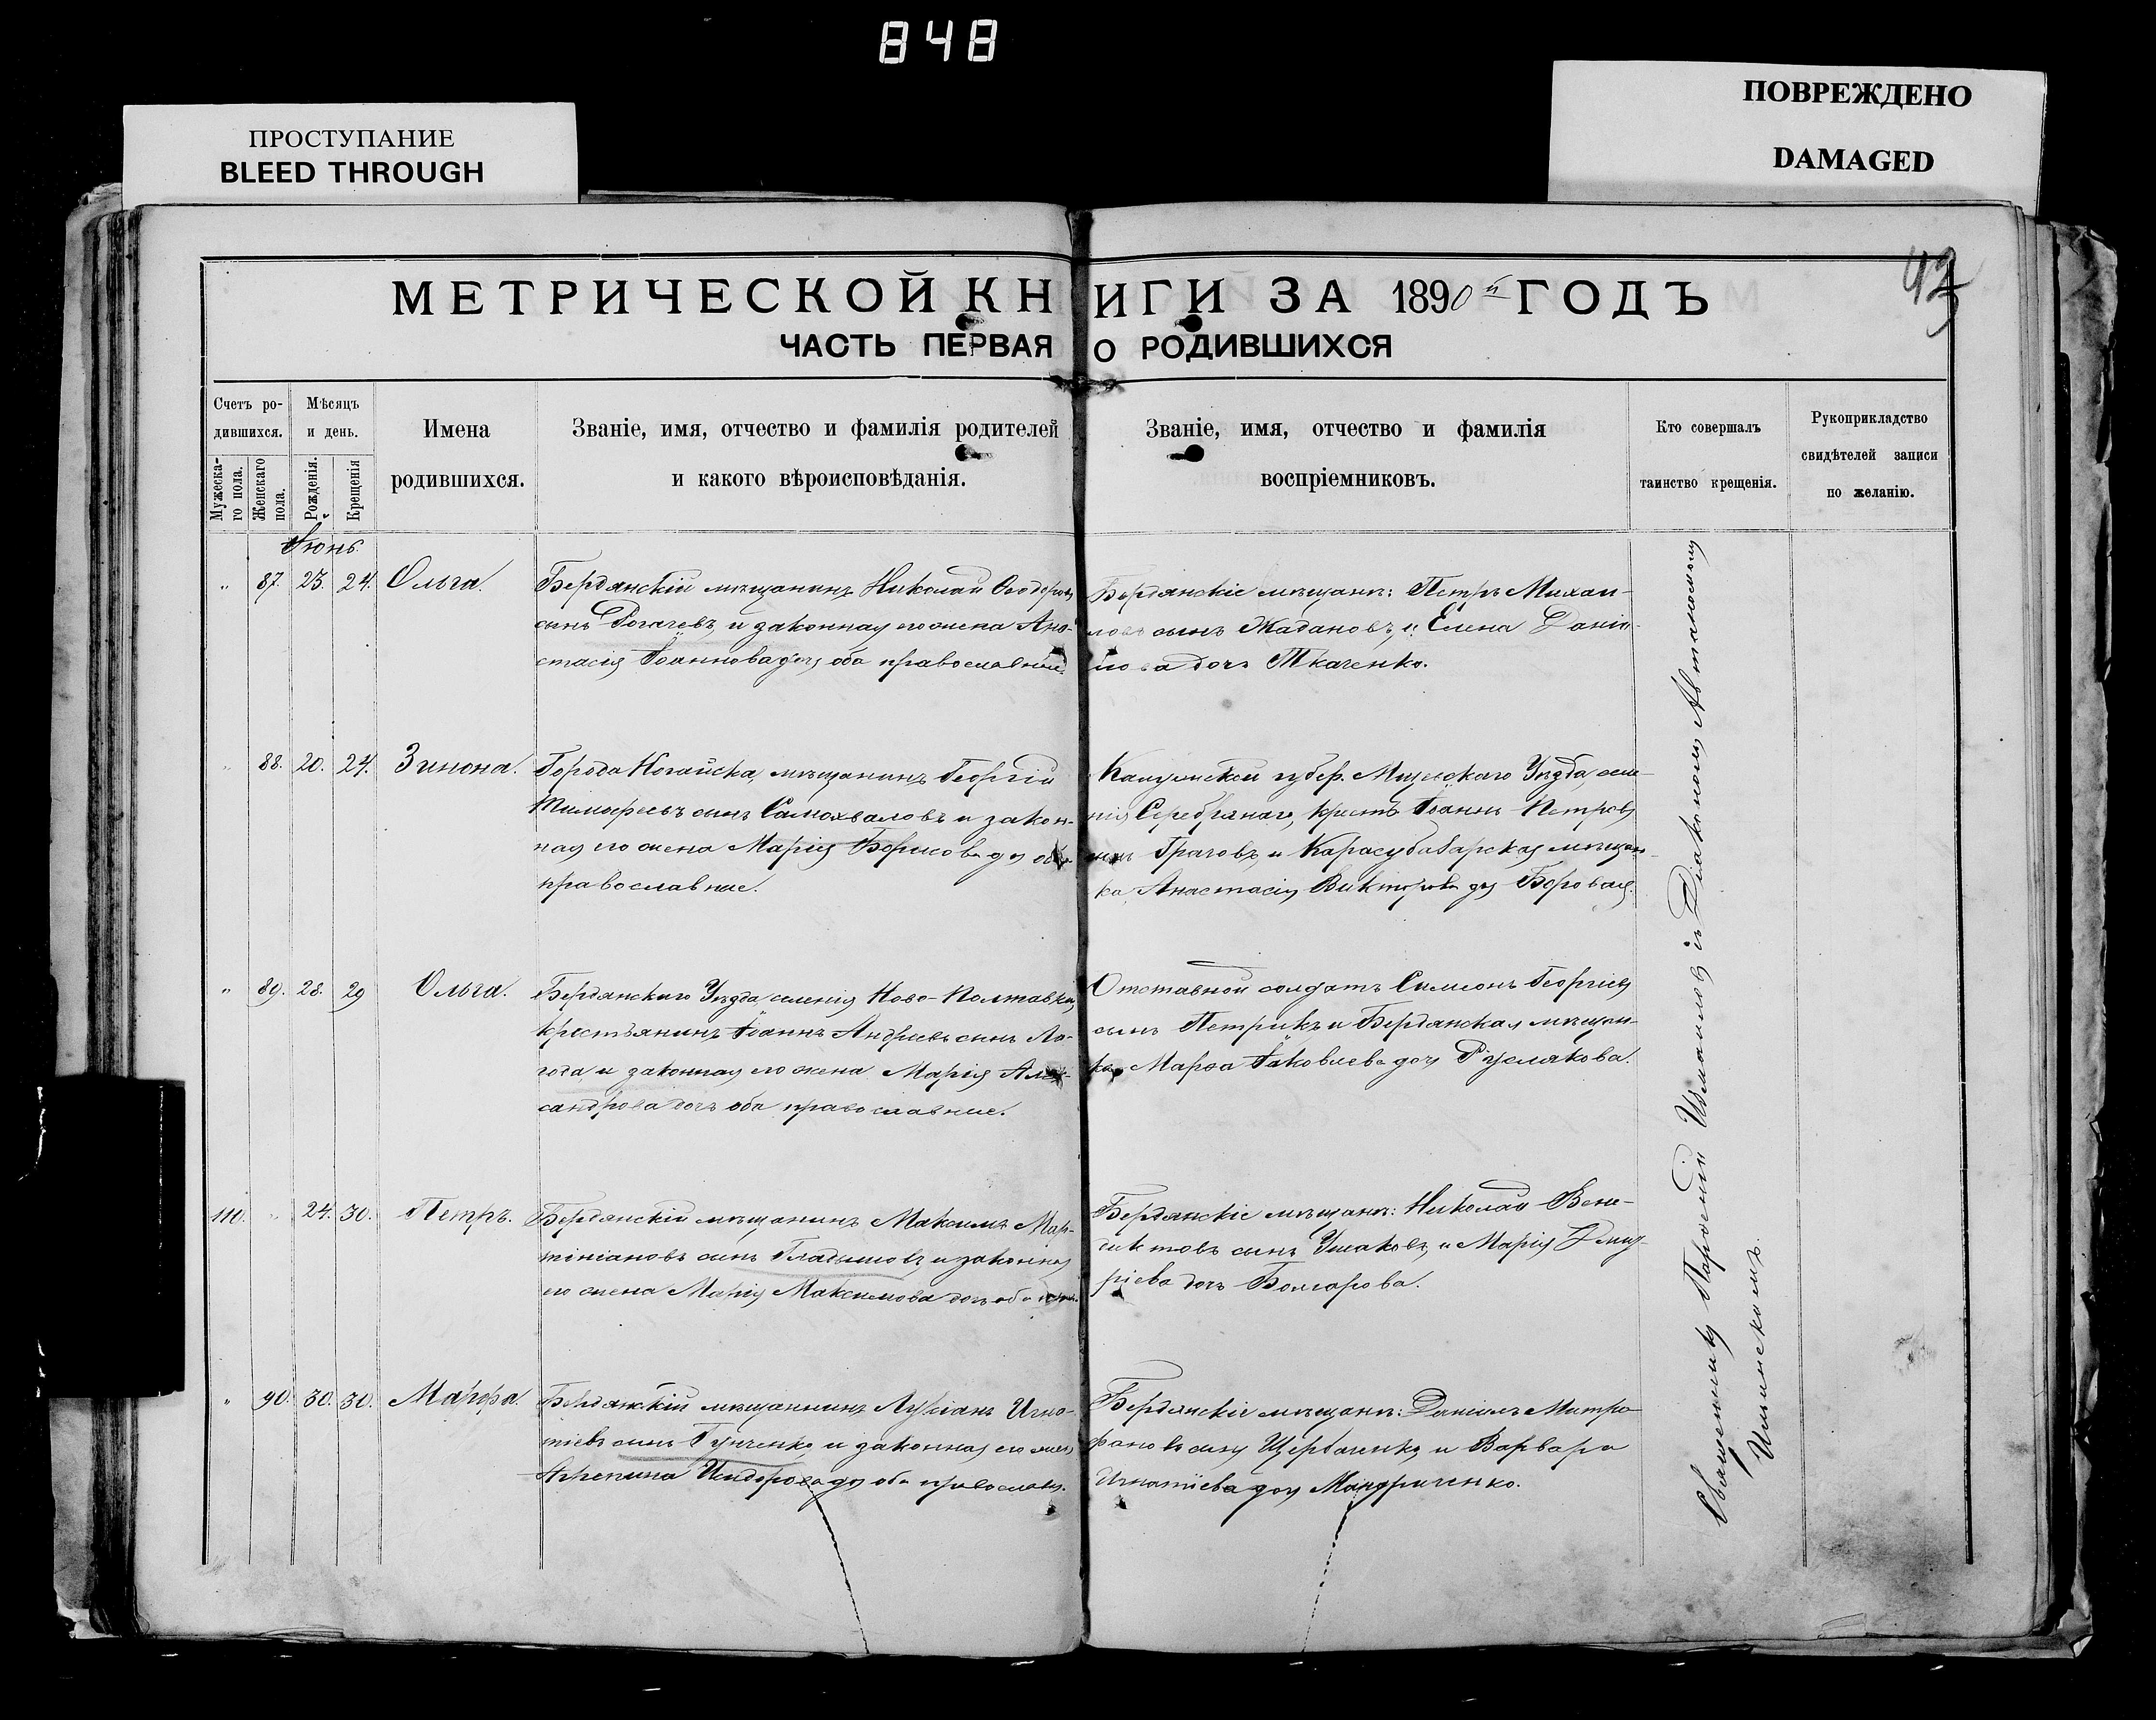 848
ПРОСТУПАНИЕ
BLEED THROUGH
ПОВРЕЖДЕНО
DAMAGED
МЕТРИЧЕСКОЙ КНИГИ ЗА 1890й ГОДЪ
ЧАСТЬ ПЕРВАЯ О РОДИВШИХСЯ
Счетъ ро-
дившихся.
Мужеска-
го пола.
Женскаго
пола.
Мѣсяцъ
и день.
Рожденія.
Крещенія
Имена
родившихся.
Званіе, имя, отчество и фамилія родителей
и какого вѣроисповѣданія.
Званіе, имя, отчество и фамилія
воспріемниковъ.
Кто совершалъ
таинство крещенія.
Рукоприкладство
свидѣтелей записи
по желанію.
Іюнь.
„ 87. 23. 24. Ольга.
Бердянскій мѣщанинъ Николай Ѳеодоровъ
сынъ Рогачевъ, и законная его жена Ана-
стасія Іоаннова дочь оба православные.
Бердянскіе мѣщане: Петръ Михаи-
ловъ сынъ Жадановъ, и Елена Даніи-
лова дочь Ткаченко.
88. 20. 24. Зинона.
Города Ногайска, мѣщанинъ Георгій
Тимофеевъ сынъ Самохваловъ и закон-
ная его жена Марія Борисова дочь оба
православные.
губер. Уѣзда, селе-
нія Серебрянаго, крест. Іоаннъ Петровъ
сынъ Грачовъ, и Карасубазарская мѣщан-
ка, Анастасія Викторова дочь Боровая.
„ 89. 28. 29 Ольга.
Бердянскаго Уѣзда, селенія Ново-Полтавки,
крестьянинъ Іоаннъ Андреевъ сынъ Ло-
года, и законная его жена Марія Алек-
сандрова дочь оба православные.
Отставной солдатъ Симеонъ Георгіевъ
сынъ Петрикъ и Бердянская мѣщан-
ка Марѳа Іаковлева дочь Руслякова.
110. „ 24. 30. Петръ.
Бердянскій мѣщанинъ Максимъ Мар-
тиніановъ сынъ Гладышовъ, и законная
его жена Марія Максимова дочь оба
Бердянскіе мѣщане: Николай Вене-
диктовъ сынъ Ушаковъ, и Марія Дмит-
ріева дочь Болгарова.
„ 90. 30. 30. Марфа.
Бердянскій мѣщанинъ Лукіанъ Игна-
тіевъ сынъ и законная его жена
Агрепина Исидорова дочь оба православн.
Бердянскіе мѣщане: Даніилъ Митро-
фановъ сынъ Щербаченко, и Варвара
Игнатіева дочь Мандриченко.
Священникъ Парѳеній Измаиловъ съ Діакономъ Автаномомъ